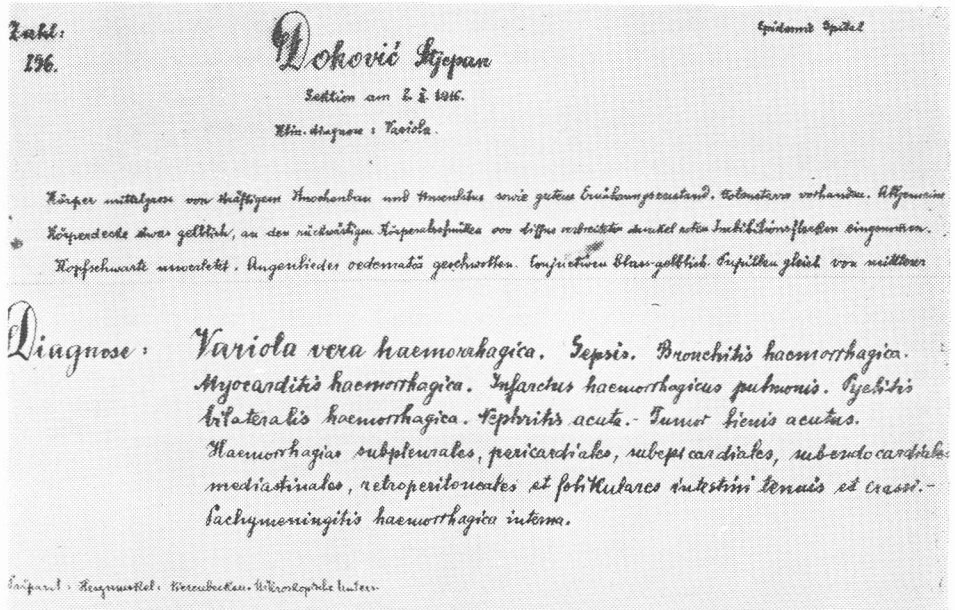 Zahl:
196.
Epidemie Spital
Đoković Stjepan
Sektion am 2. X. 1916.
Klin. diagnose : Variola.
Körper mittelgross von kräftigem Knochenbau und Muskulatur sowie gutem Ernährungszustand. Totenstarre vorhanden. Allgemeine
Körperdecke etwas gelblich, an den rückwärtigen Körperabschnitten von diffus verbreiteten dunkel roten Imbibitionsflecken eingenommen.
Kopfschwarte unverletzt. Augenlieder oedematös geschwollen. Conjunctiven blass-gelblich. Pupillen gleich von mittlerer
Diagnose : Variola vera haemorrhagica. Sepsis. Bronchitis haemorrhagica.
Myocarditis haemorrhagica. Infarctus haemorrhagicus pulmonis. Pyelitis
bilateralis haemorrhagica. Nephritis acuta.- Tumor lienis acutus.
Haemorrhagiae subpleurales, pericardiales, subepicardiales, subendocardiales
mediastinales, retroperitoneales et folikulares intestini tenuis et crassi.-
Pachymeningitis haemorrhagica interna.
Präparat : Herzmuskel. Nierenbecken. Mikroskopische Unters.